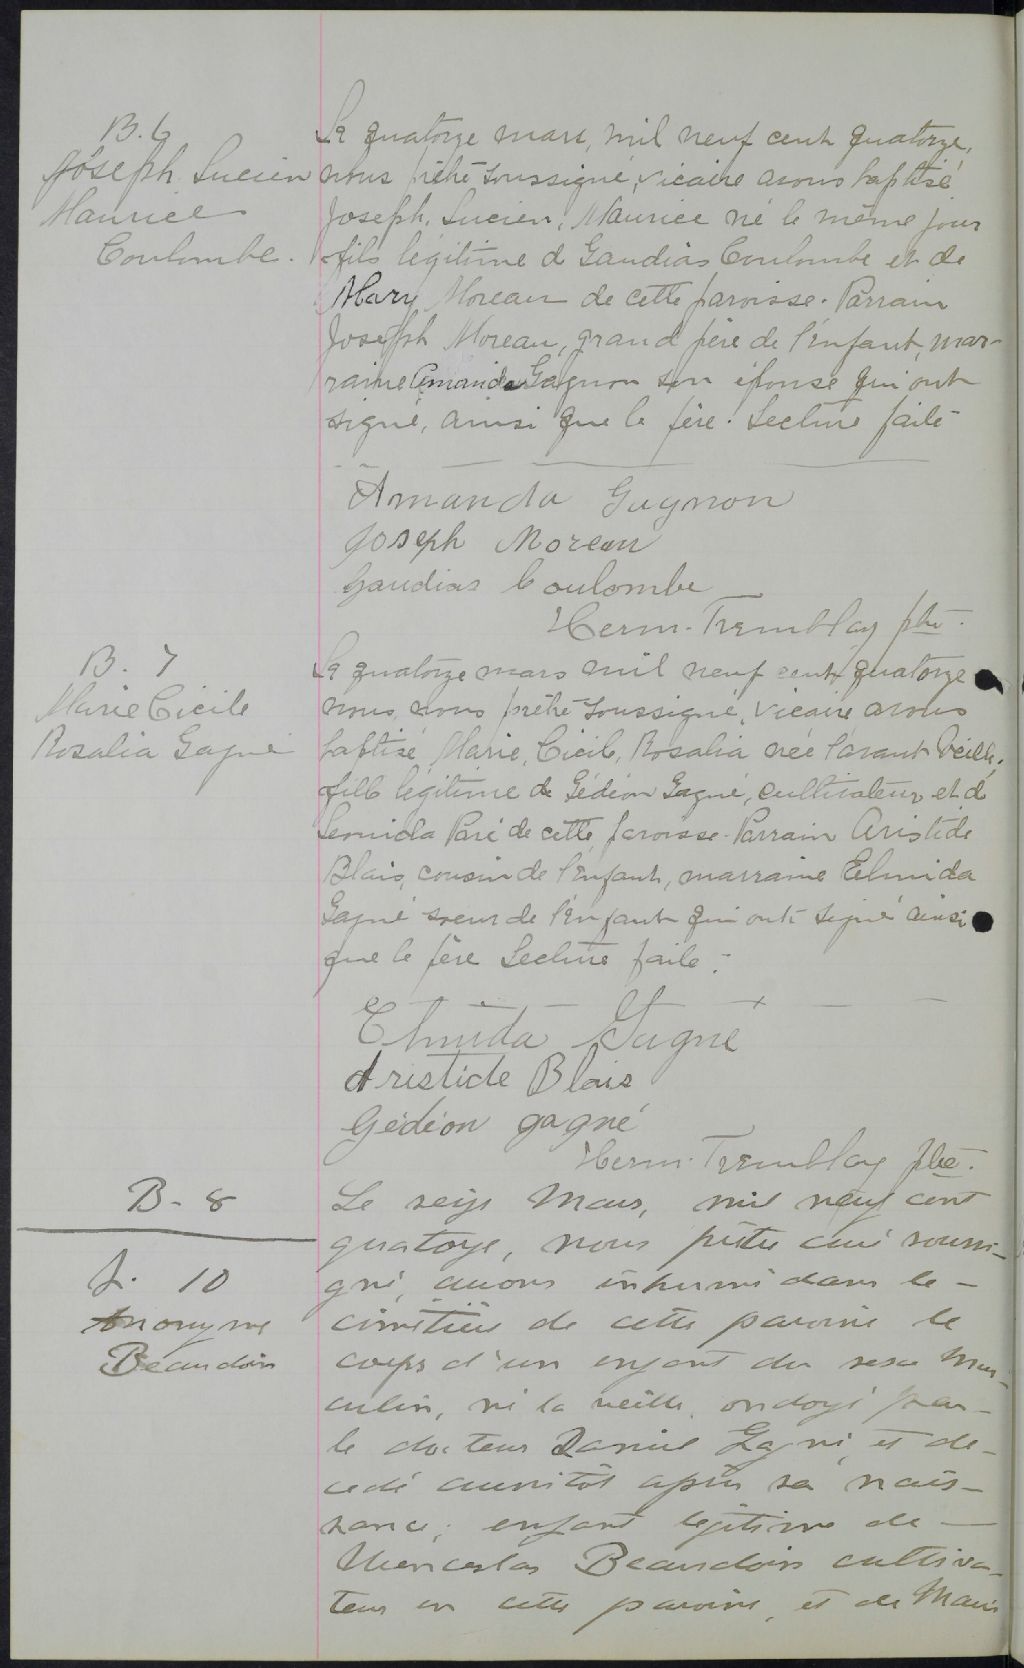 B. 6
Joseph, Lucien
Maurice
Coulombe.
Le quatorze mars, mil neuf cent quatorze,
nous prêtre soussigné, vicaire avons baptisé
Joseph, Lucien, Maurice né le même jour
fils légitime de Gaudias Coulombe et de
Mary Moreau de cette paroisse. Parrain
Joseph Moreau, grand père de l'enfant, mar-
raine Amanda Gagnon son épouse qui ont
signé, ainsi que le père. Lecture faite
Amanda Gagnon
Joseph Moreau
Gaudias Coulombe
Herm. Tremblay ptre.
B. 7
Marie Cécile
Rosalia Gagné
Le quatorze mars mil neuf cent quatorze
nous, nous prêtre soussigné, vicaire avons
baptisé Marie, Cécile, Rosalia née l'avant veille,
fille légitime de Gédéon Gagné, cultivateur et de
Leonida Paré de cette paroisse. Parrain Aristide
Blais, cousin de l'enfant, marraine Elmida
Gagné soeur de l'enfant qui ont signé ainsi
que le père Lecture faite.
Elmida Gagné
Aristide Blais
Gédéon gagné
Herm. Tremblay ptre.
B - 8
S. 10
Anonyme
Beaudoin
Le seize Mars, mil neuf cent
quatorze, nous prêtre curé soussi-
gné, avons inhumé dans le
cimetière de cette paroisse le
corps d'un enfant du sexe Mas-
culin, né la veille, ondoyé par
le docteur Daniel Gagné, et dé-
cédé aussitôt après sa nais-
sance; enfant légitime de
Wenceslas Beaudoin cultiva-
teur en cette paroisse, et de Marie